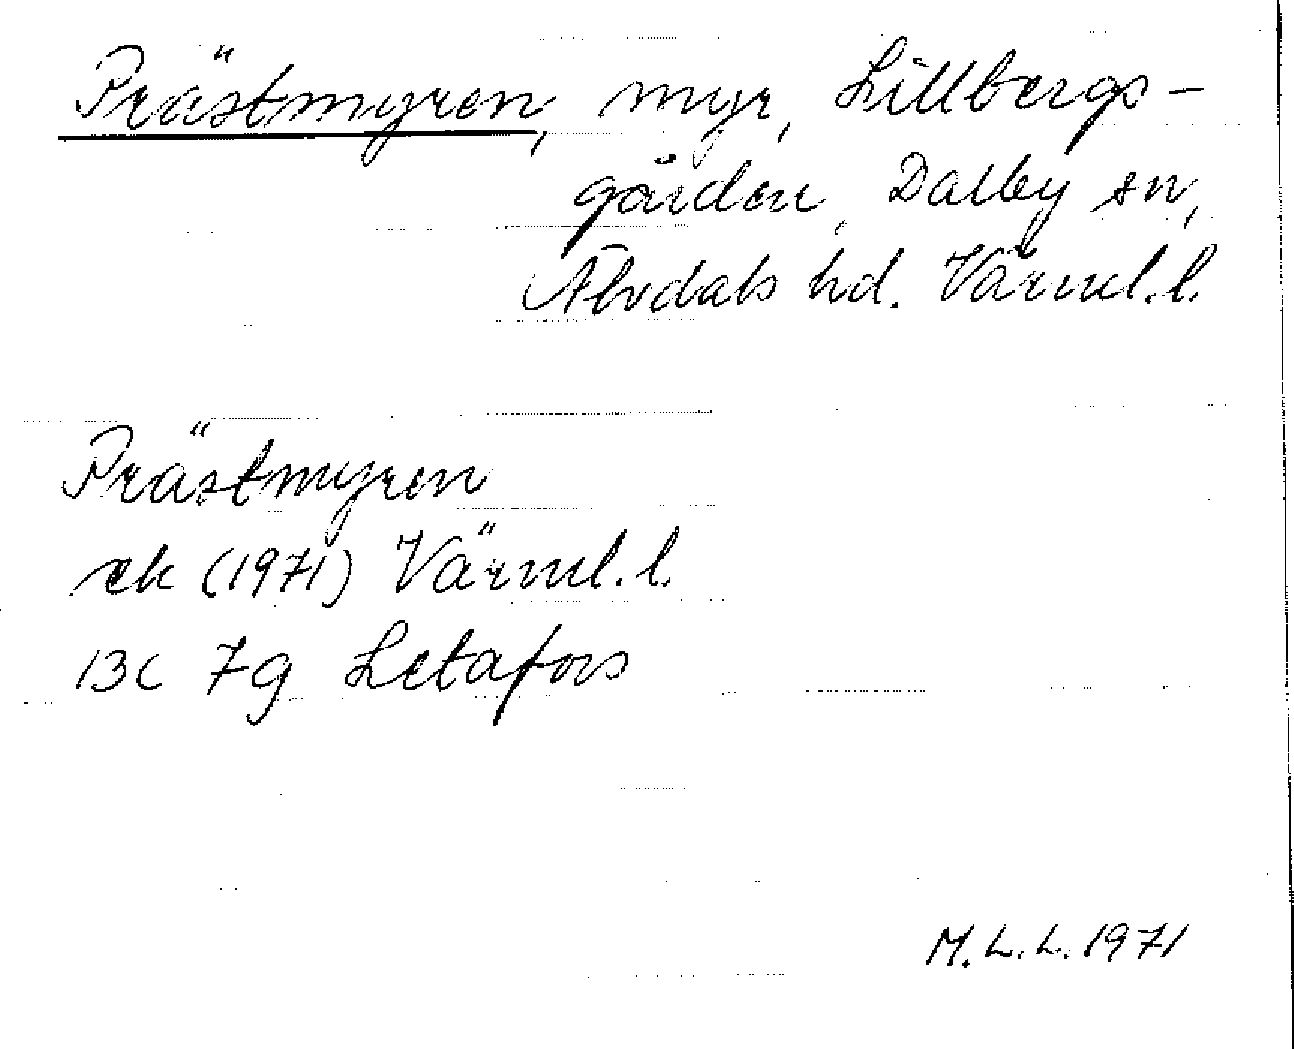 Prästmyren, myr, Lillbergs-
gården, Dalby sn,
Älvdals hd. Värml.l.
Prästmyren
ek (1971) Värml.l.
13c 7g Letafors
M.L.L.1971